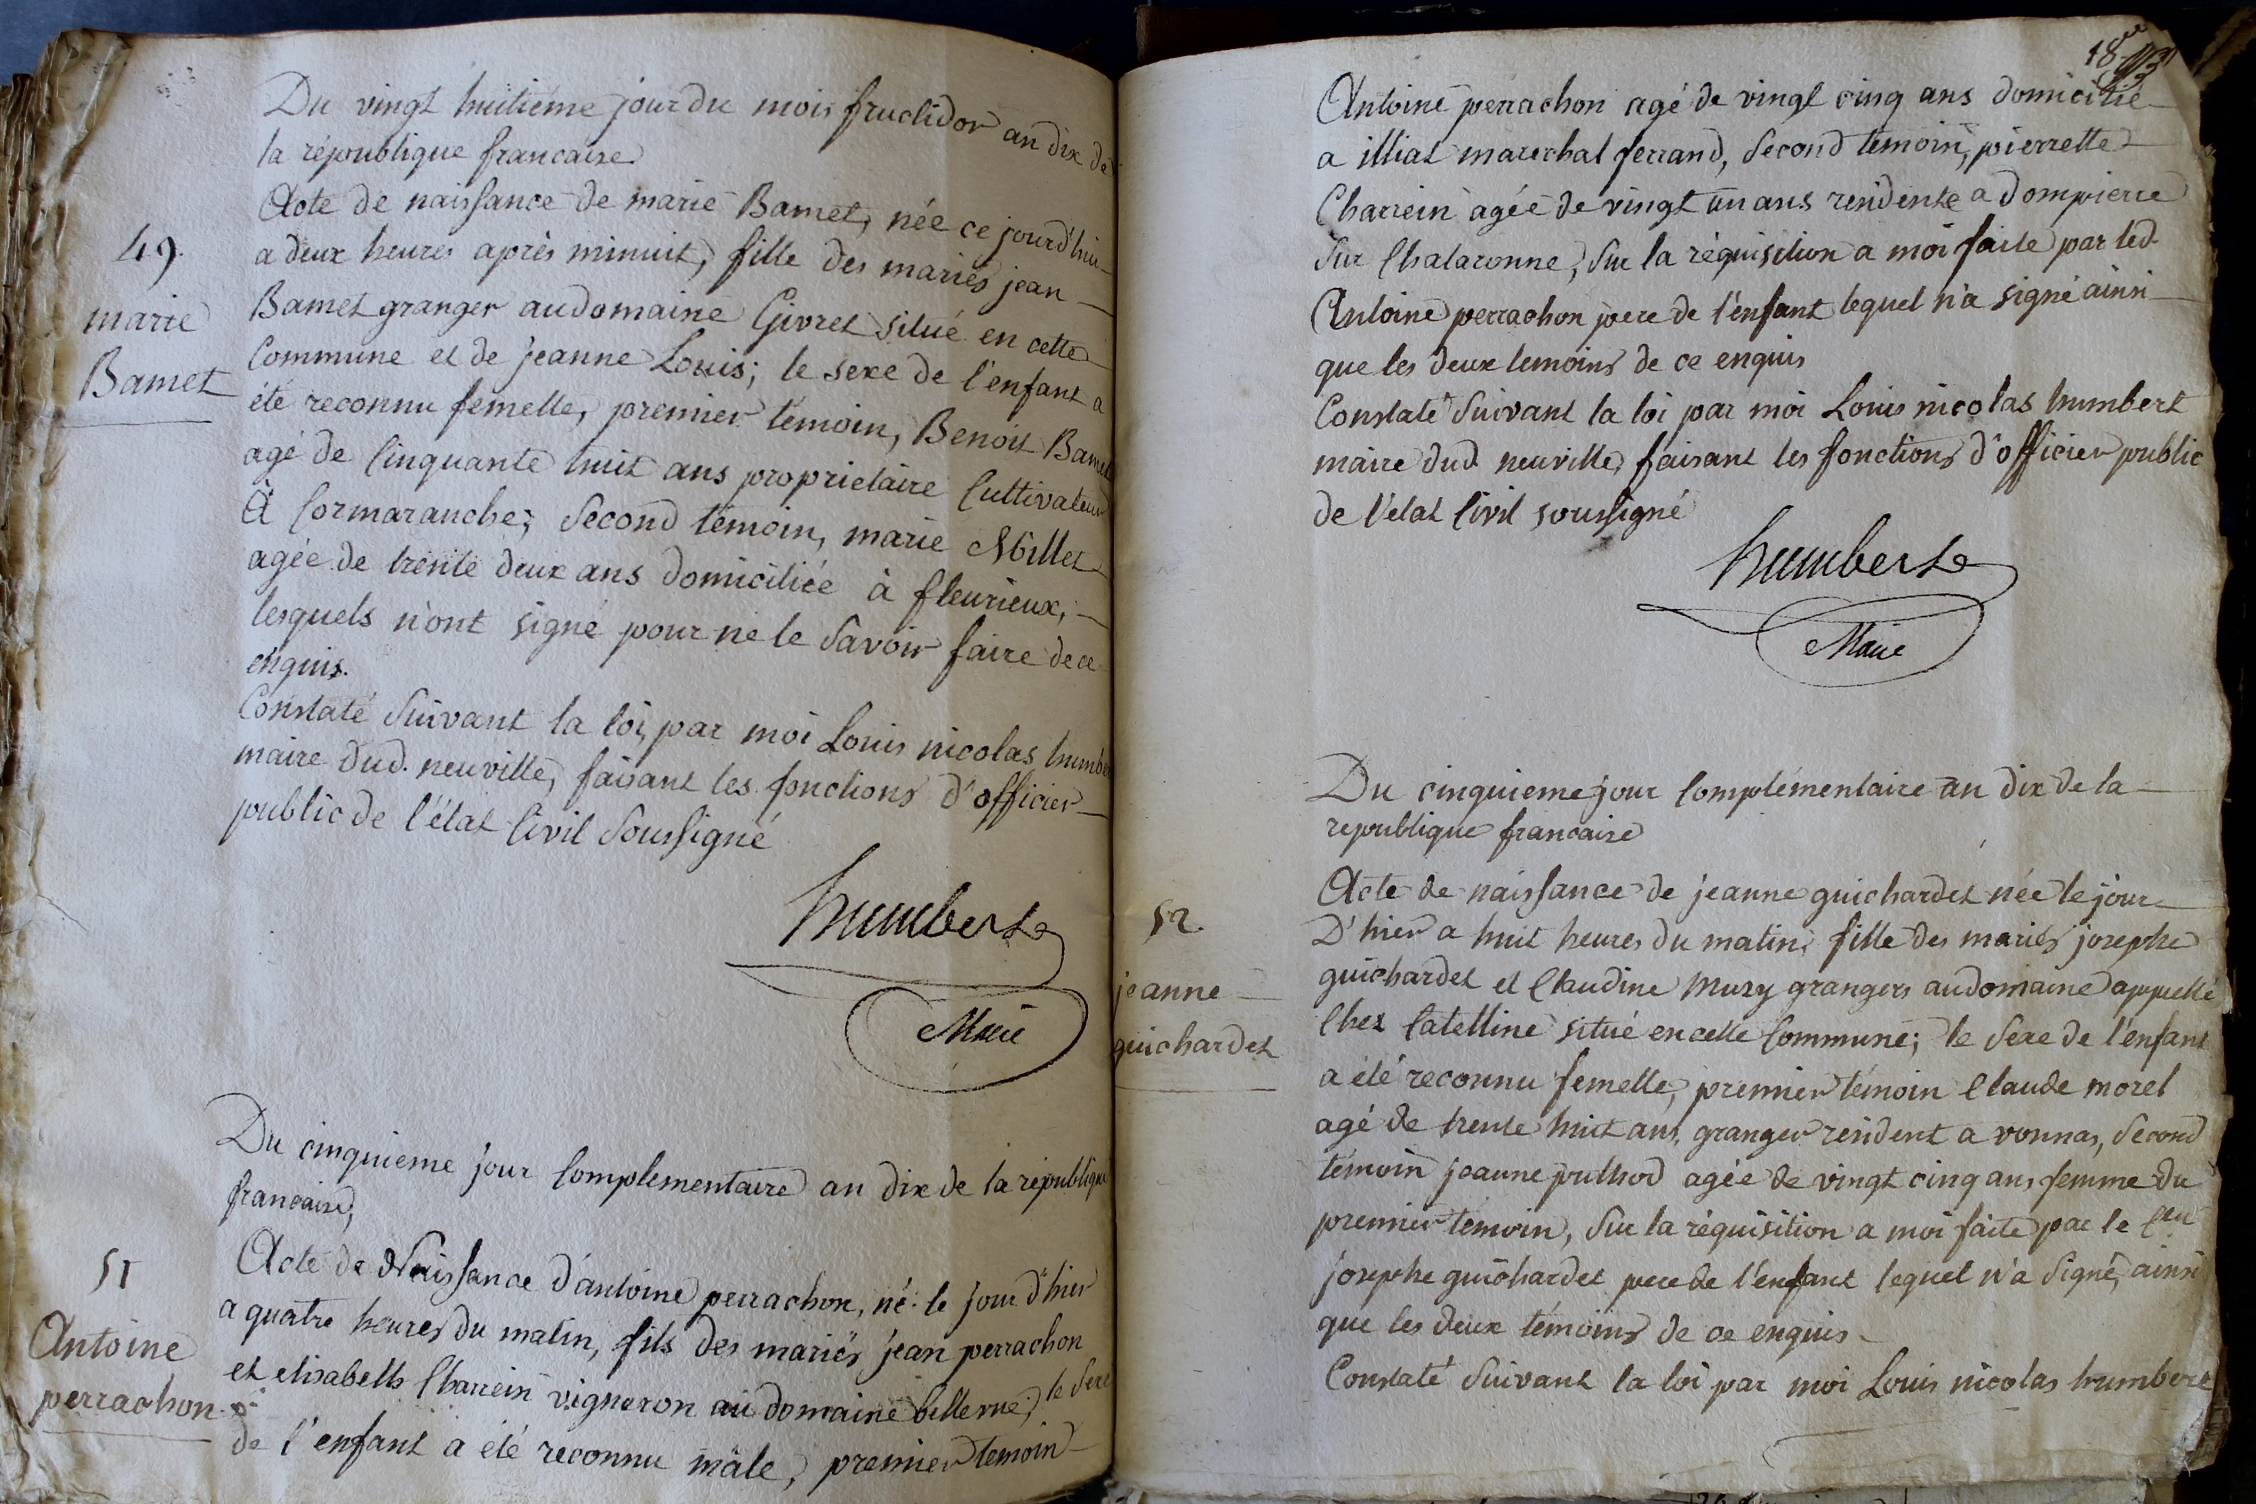 Du vingt huitieme jour du mois fructidor an dix de
la république francaise
Acte de naissance de marie Bamet, née ce jourd'hui
a deux heures après minuit, fille des mariés jean
Bamet granger au domaine Givret situé en cette
Commune et de jeanne Louis; le sexe de l'enfant a
été reconnu femelle, premier témoin, Benoit Bamet
agé de Cinquante huit ans proprietaire Cultivateur
À Cormaranche; Second témoin, marie Millet
agée de trente deux ans domiciliée à fleurieux,
lesquels n'ont signé pour ne le Savoir faire de ce
enquis.
Constaté Suivant la loi, par moi Louis nicolas humbe
maire dud. neuville, faisant les fonctions d'officier
public de l'état Civil Soussigné
humbert
Maire
49.
marie
Bamet
Du cinquieme jour Complementaire an dix de la république
francaise,
Acte de Naissance d'antoine perrachon, né le jour d'hier
a quatre heures du matin, fils des mariés jean perrachon
et elisabeth Charrein vigneron au domaine bellevue, le Sexe
de l'enfant a été reconnu mâle, premier temoin
51
Antoine
perrachon
18me
Antoine perrachon agé de vingt cinq ans domicilié
a illiat marechal ferrand, Second temoin, pierrette
Charrein agée de vingt un ans residente a dompierre
Sur Chalaronne, Sur la réquisition a moi faite par led.
Antoine perrachon pere de l'enfant lequel n'a signé ainsi
que les deux temoins de ce enquis
Constaté Suivant la loi par moi Louis nicolas humbert
maire dud. neuville, faisant les fonctions d'officier public
de l'état Civil soussigné
humbert
Maire
Du cinquieme jour Complémentaire an dix de la
republique francaise
Acte de naissance de jeanne guichardet née le jour
D'hier a huit heures du matin, fille des mariés josephe
guichardet et Claudine Muzy grangers au domaine appellé
Chez Catelline situé en cette Commune; le Sexe de l'enfant
a été reconnu femelle, premier témoin Claude morel
agé de trente huit ans, granger resident a vonnas, Second
témoin jeanne puthod agée de vingt cinq ans femme du
premier temoin, Sur la réquisition a moi faite par le Cen
josephe guichardet pere de l'enfant lequel n'a Signé, ainsi
que les deux témoins de ce enquis
Constaté Suivant la loi par moi Louis nicolas humbert
52.
jeanne
guichardet